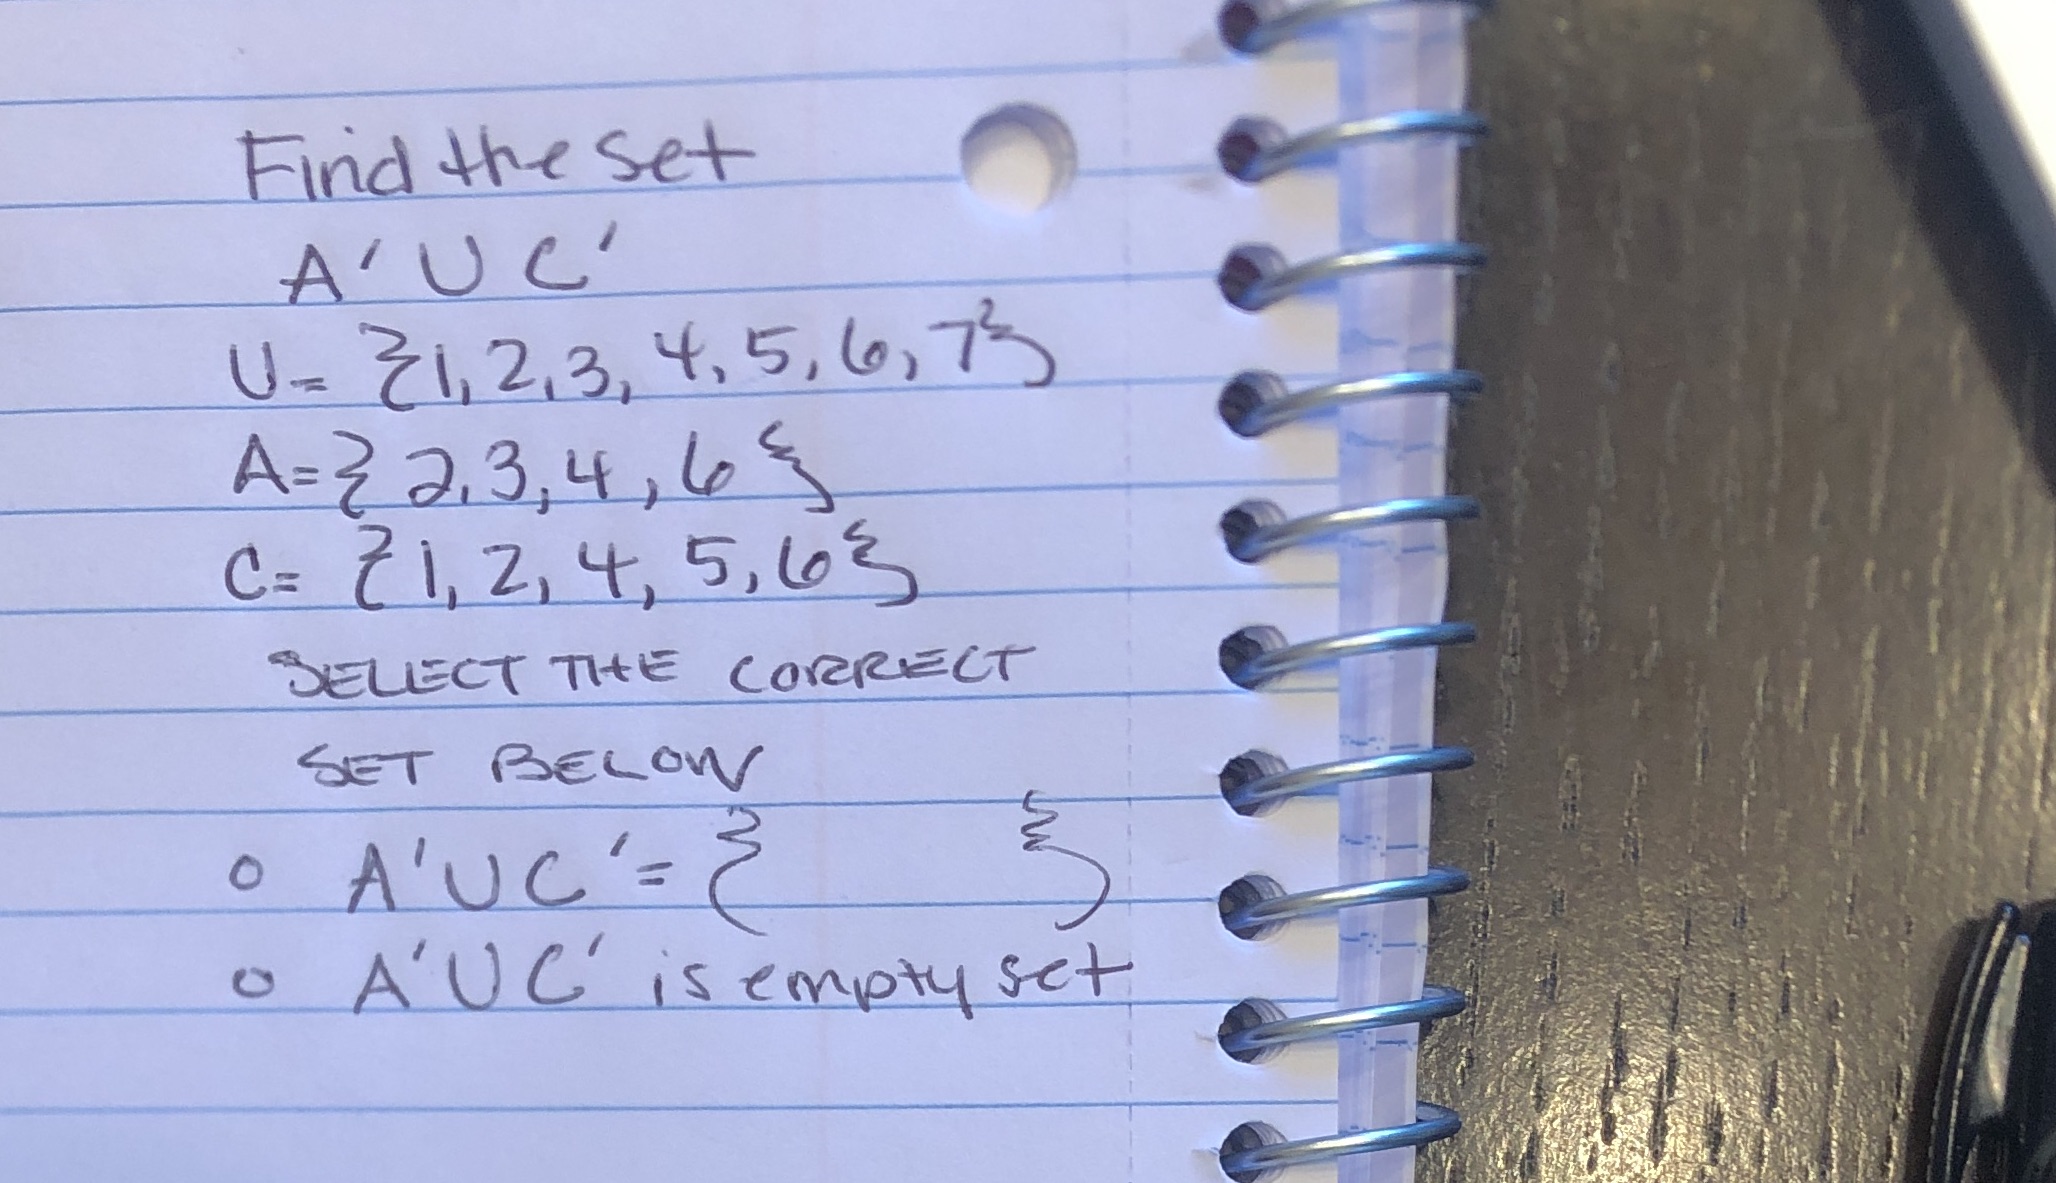 Find the set
A' U C'
U= {1, 2, 3, 4, 5, 6, 7}
A={ 2, 3, 4, 6 }
C= {1, 2, 4, 5, 6}
SELECT THE CORRECT
SET BELOW
o A'UC'= { }
o A'UC' is empty set